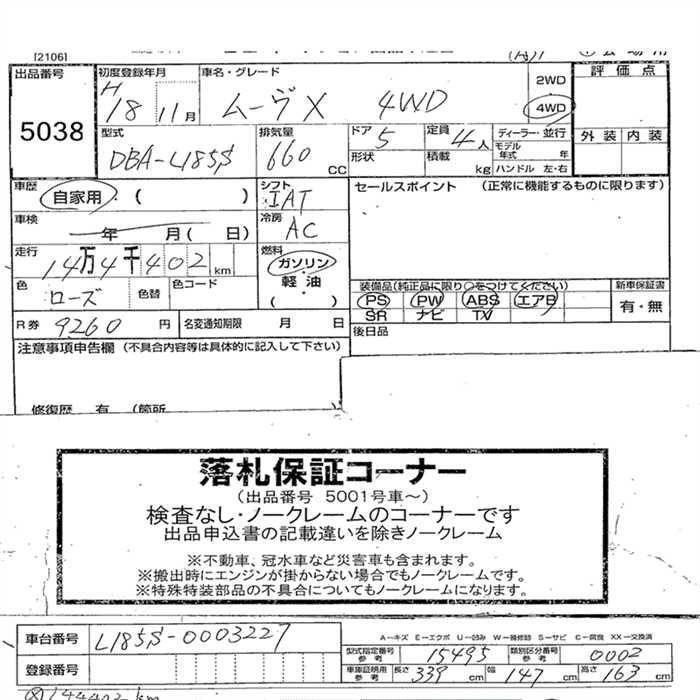 [2106]
出品番号 5038
初度登録年月 H 18 11月
車名・グレード ムーヴX 4WD
2WD
4WD
評価点
外装 内装
型式 DBA-L185S
排気量 660 CC
ドア 5 定員 4人
形状 積載 kg
ディーラー・並行
モデル年式 年
ハンドル 左・右
車歴 自家用・( )
シフト IAT
セールスポイント (正常に機能するものに限ります)
車検 年 月( 日)
冷房 AC
走行 14万4千402km
燃料 ガソリン・軽油・( )
色 ローズ 色替 色コード
装備品(純正品に限り○をつけてください)
PS PW ABS エアB
SR ナビ TV
新車保証書 有・無
R券 9260円 名変通知期限 月 日
後日品
注意事項申告欄 (不具合内容等は具体的に記入して下さい)
修復歴 有 (箇所
落札保証コーナー
(出品番号 5001号車~)
検査なし・ノークレームのコーナーです
出品申込書の記載違いを除きノークレーム
※不動車、冠水車など災害車も含まれます。
※搬出時にエンジンが掛からない場合でもノークレームです。
※特殊特装部品の不具合についてもノークレームになります。
車台番号 L185S-0003227
A-キズ E-エクボ U-凹み W-補修跡 S-サビ C-腐食 XX-交換済
型式指定番号 参考 15495 類別区分番号 参考 0002
登録番号
車庫証明用 参考 長さ 339cm 幅 147cm 高さ 163cm
144402km